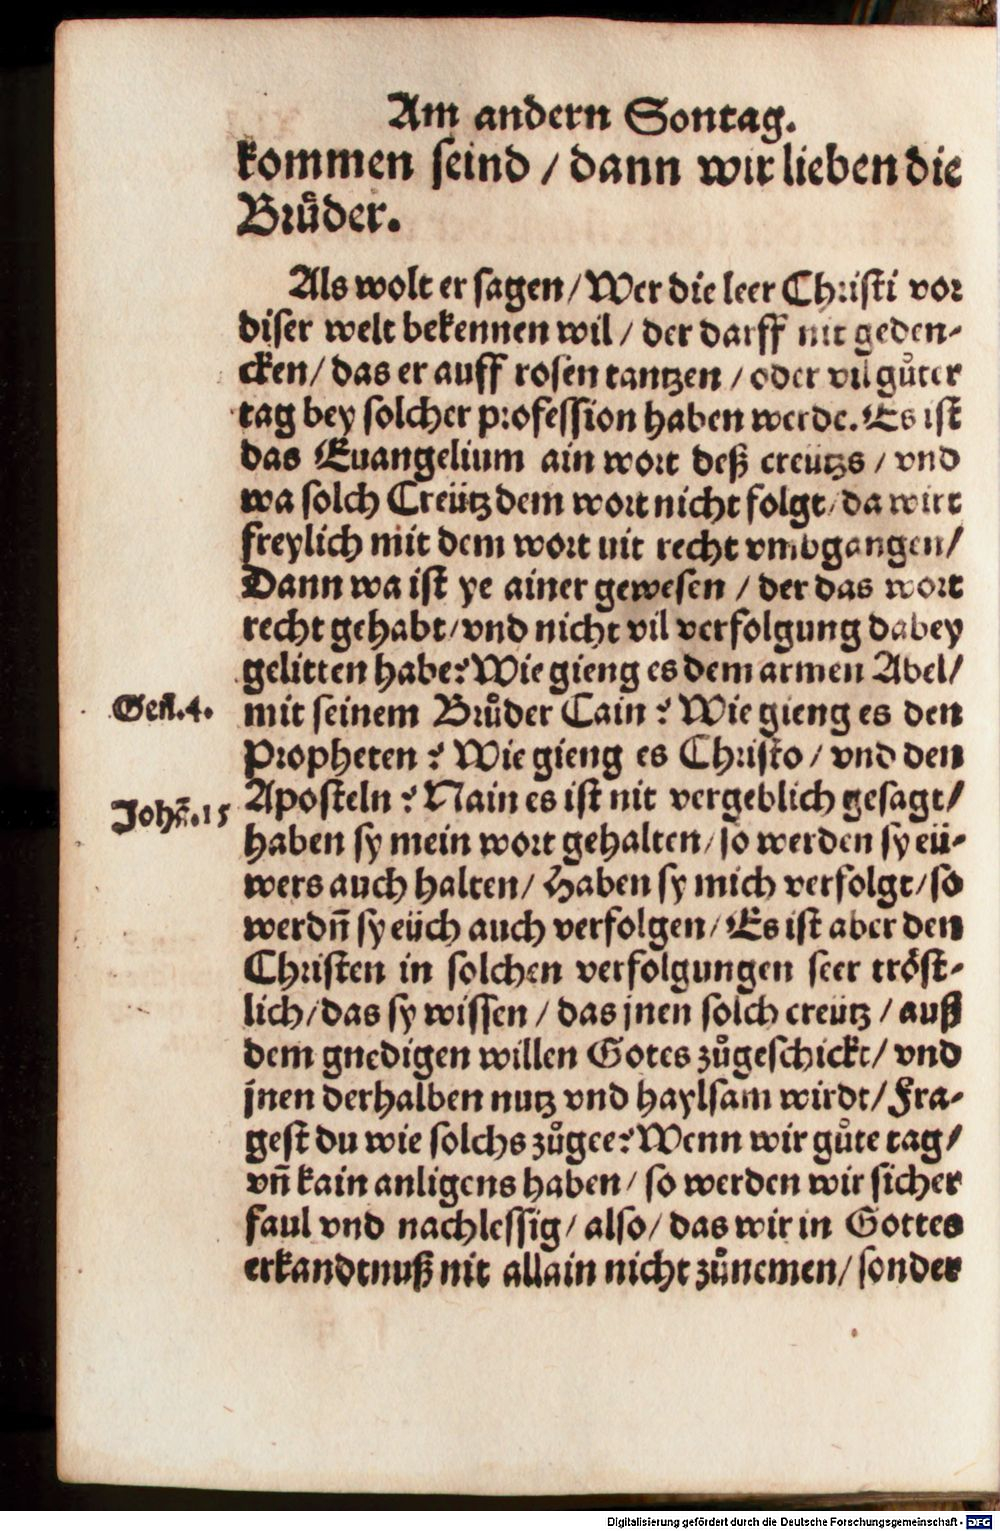 Am andern Sontag.
kommen seind / dann wir lieben die
Bruͦder.
Als wolt er sagen / Wer die leer Christi vor
diser welt bekennen wil / der darff nit geden-
cken / das er auff rosen tantzen / oder vil guͦter
tag bey solcher profession haben werde. Es ist
das Euangelium ain wort deß creütзs / vnd
wa solch Creütz dem wort nicht folgt / da wirt
freylich mit dem wort nit recht vmbgangen /
Dann wa ist ye ainer gewesen / der das wort
recht gehabt / vnd nicht vil verfolgung dabey
gelitten habe? Wie gieng es dem armen Abel /
Gen̄.4.
mit seinem Bruͦder Cain? Wie gieng es den
Propheten? Wie gieng es Christo / vnd den
Johā.15
Aposteln? Nain es ist nit vergeblich gesagt /
haben sy mein wort gehalten / so werden sy eü-
wers auch halten / Haben sy mich verfolgt / so
werdn̄ sy eüch auch verfolgen / Es ist aber den
Christen in solchen verfolgungen seer tröst-
lich / das sy wissen / das jnen solch creütz / auß
dem gnedigen willen Gotes zuͦgeschickt / vnd
jnen derhalben nutz vnd haylsam wirdt / Fra-
gest du wie solchs zuͦgee? Wenn wir guͦte tag /
vn̄ kain anligens haben / so werden wir sicher
faul vnd nachlessig / also / das wir in Gottes
erkandtnuß nit allain nicht zuͦnemen / sonder
Digitalisierung gefördert durch die Deutsche Forschungsgemeinschaft - DFG